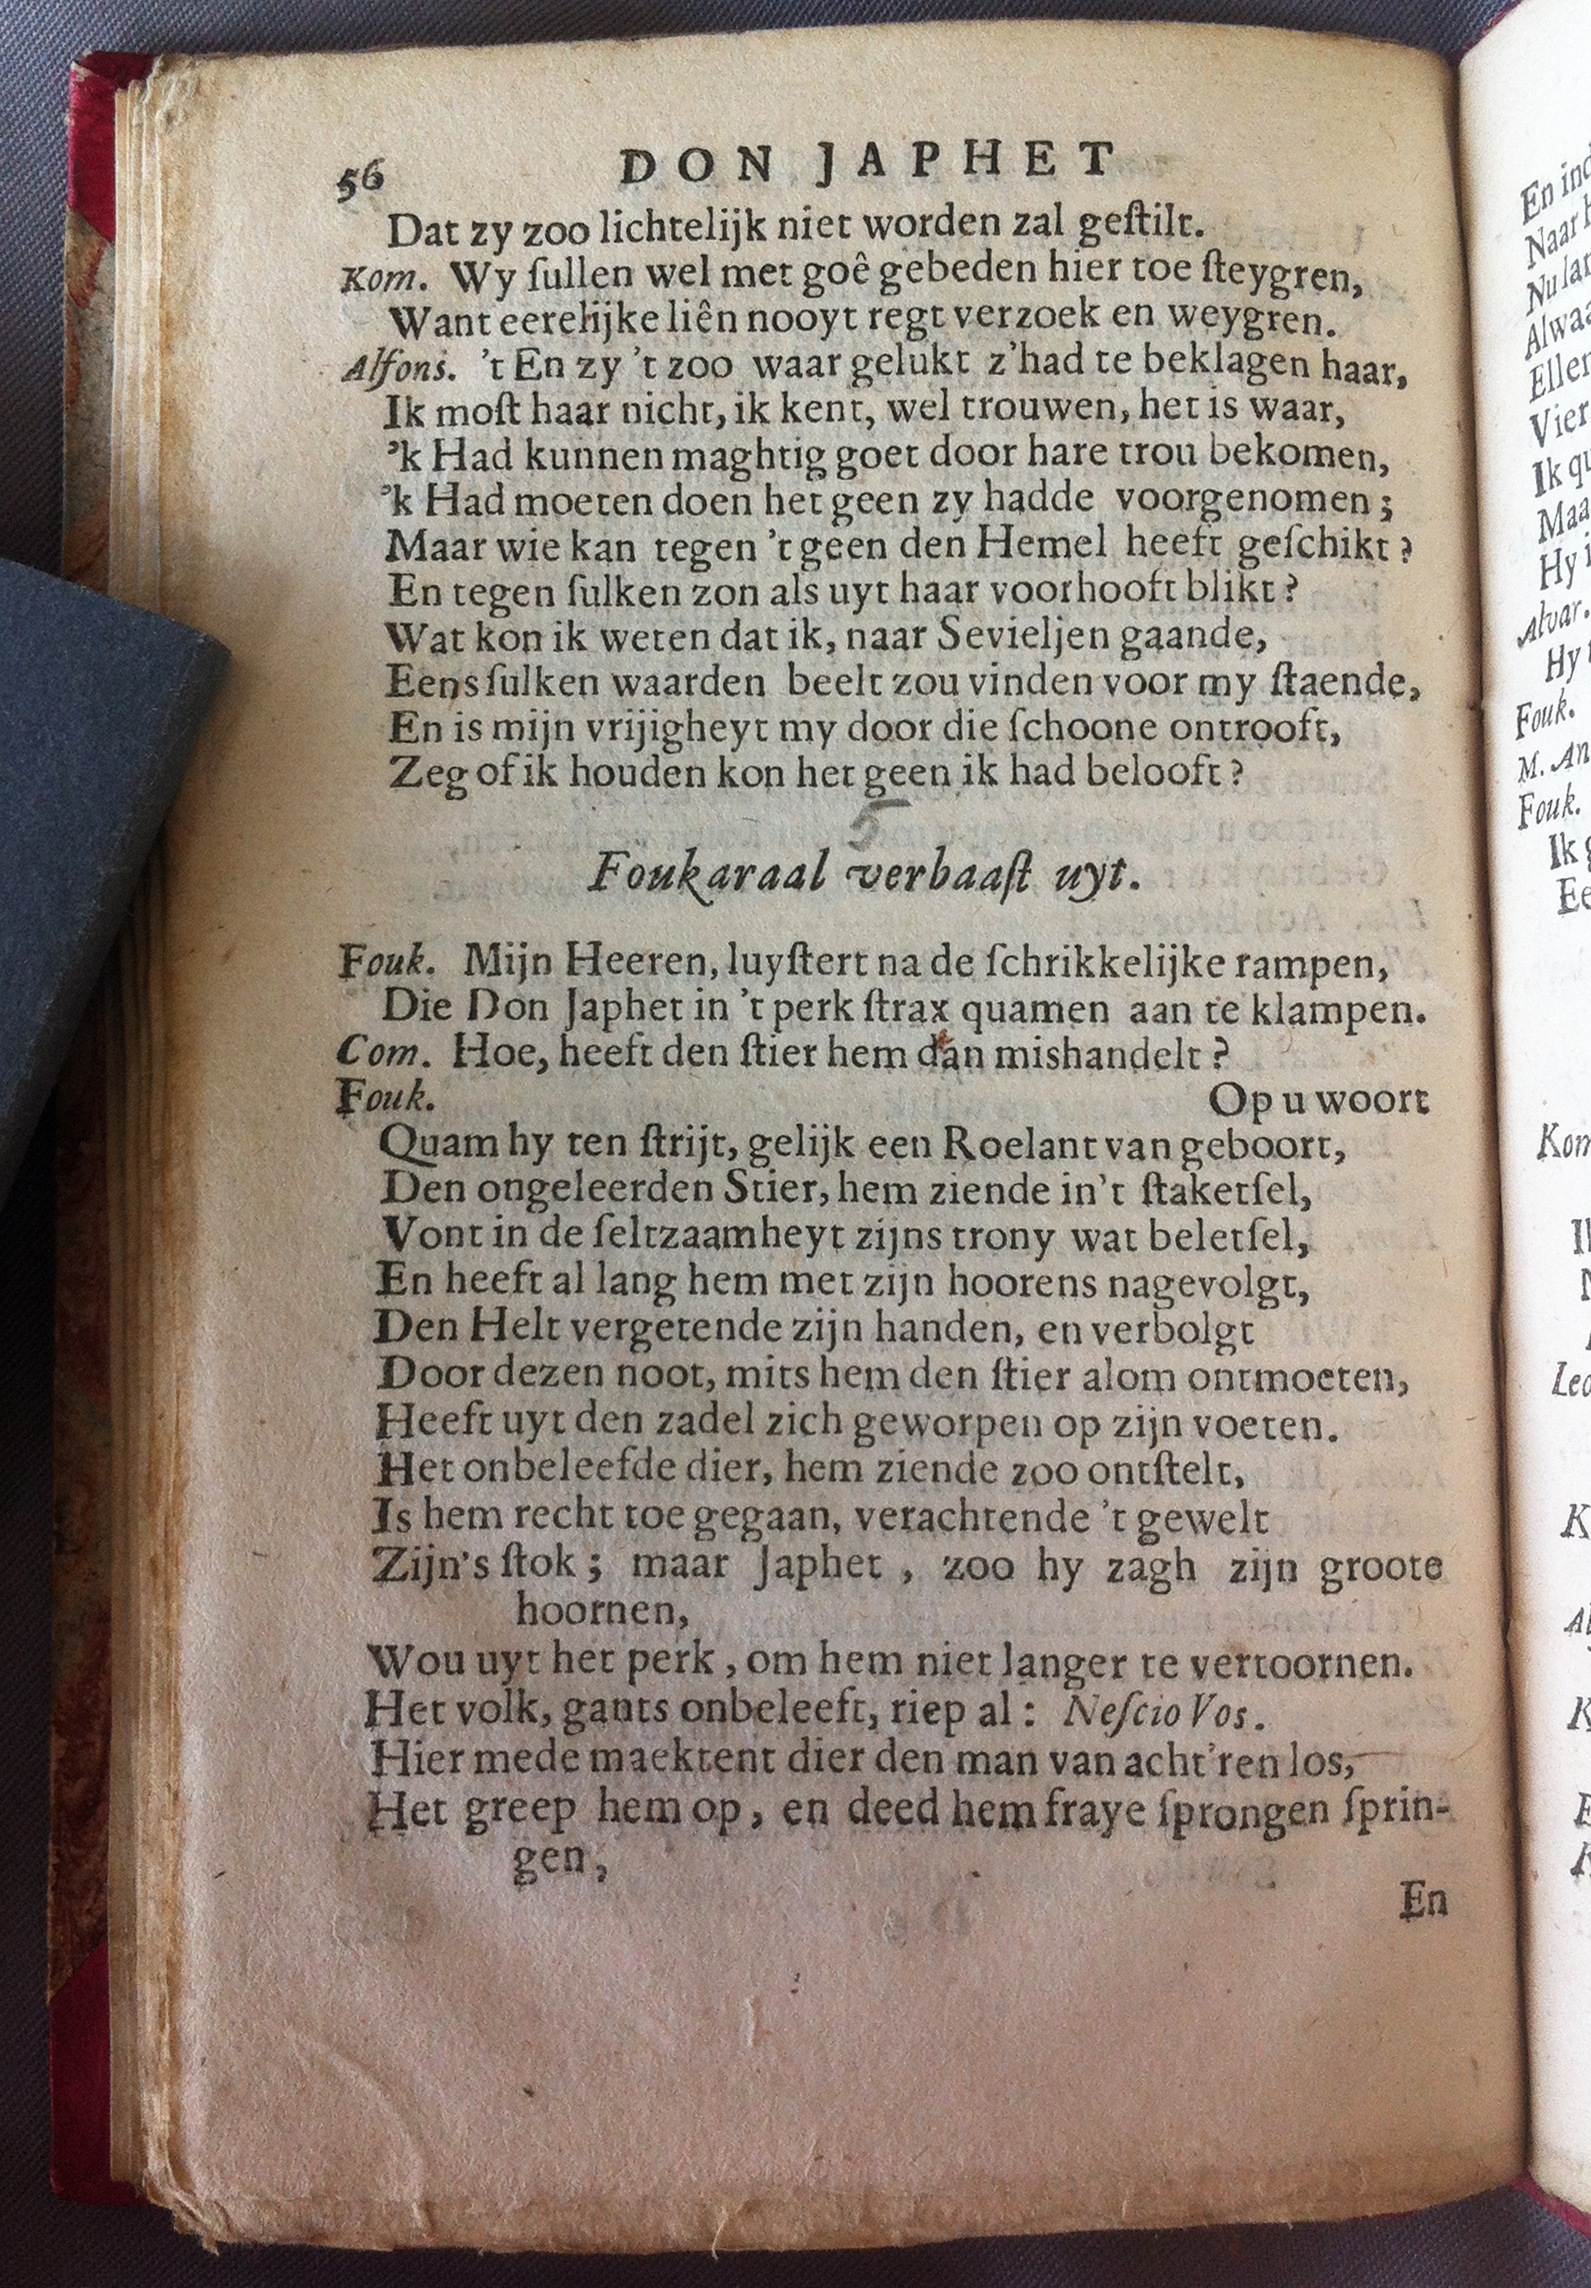 56 DON JAPHET
Dat zy zoo lichtelijk niet worden zal geſtilt.
Kom. Wy ſullen wel met goê gebeden hier toe ſteygren,
Want eerelijke liên nooyt regt verzoek en weygren.
Alfons. 't En zy 't zoo waar gelukt z'had te beklagen haar,
Ik moſt haar nicht, ik kent, wel trouwen, het is waar,
'k Had kunnen maghtig goet door hare trou bekomen,
'k Had moeten doen het geen zy hadde voorgenomen;
Maar wie kan tegen 't geen den Hemel heeft geſchikt?
En tegen ſulken zon als uyt haar voorhooft blikt?
Wat kon ik weten dat ik, naar Sevieljen gaande,
Eens ſulken waarden beelt zou vinden voor my ſtaende,
En is mijn vrijigheyt my door die ſchoone ontrooft,
Zeg of ik houden kon het geen ik had belooft?
5
Foukaraal verbaaſt uyt.
Fouk. Mijn Heeren, luyſtert na de ſchrikkelijke rampen,
Die Don Japhet in 't perk ſtrax quamen aan te klampen.
Com. Hoe, heeft den ſtier hem dan mishandelt?
Fouk. Op u woort
Quam hy ten ſtrijt, gelijk een Roelant van geboort,
Den ongeleerden Stier, hem ziende in't ſtaketſel,
Vont in de ſeltzaamheyt zijns trony wat beletſel,
En heeft al lang hem met zijn hoorens nagevolgt,
Den Helt vergetende zijn handen, en verbolgt
Door dezen noot, mits hem den ſtier alom ontmoeten,
Heeft uyt den zadel zich geworpen op zijn voeten.
Het onbeleefde dier, hem ziende zoo ontſtelt,
Is hem recht toe gegaan, verachtende 't gewelt
Zijn's ſtok; maar Japhet, zoo hy zagh zijn groote
hoornen,
Wou uyt het perk, om hem niet langer te vertoornen.
Het volk, gants onbeleeft, riep al: Neſcio Vos.
Hier mede maektent dier den man van acht'ren los,
Het greep hem op, en deed hem fraye ſprongen ſprin-
gen,
En
En ind
Naar
Nu lan
Alwaa
Ellen
Vier
Ik qu
Maa
Hy i
Alvar.
Hy
Fouk.
M. An
Fouk.
Ik
Ee
Kom
Leo
K
Al
K